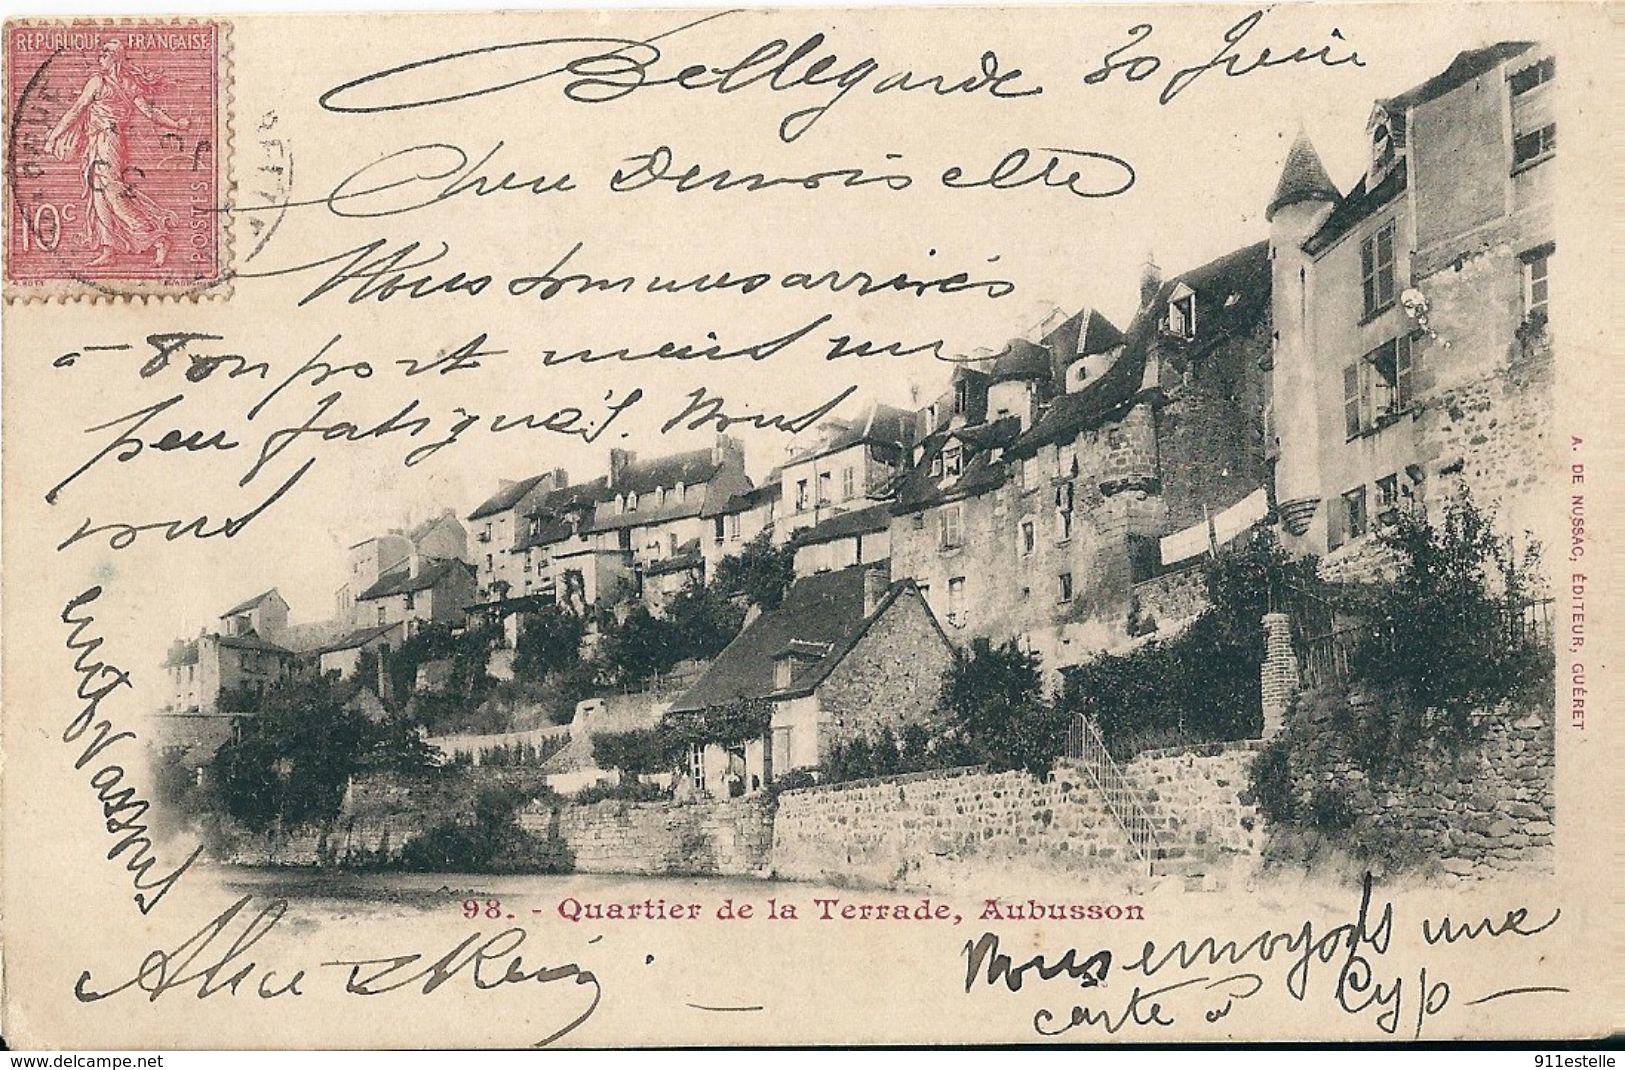 RÉPUBLIQUE FRANÇAISE
10c
POSTES
Bellegarde 30 Juin
Chère Demoiselle
Nous sommes arrivés
à bon port mais un
peu fatigués. Nous
vous
Alice
Nous envoyons une
carte à Cyp
98. - Quartier de la Terrade, Aubusson
A. DE NUSSAC, ÉDITEUR, GUÉRET
www.delcampe.net
911estelle